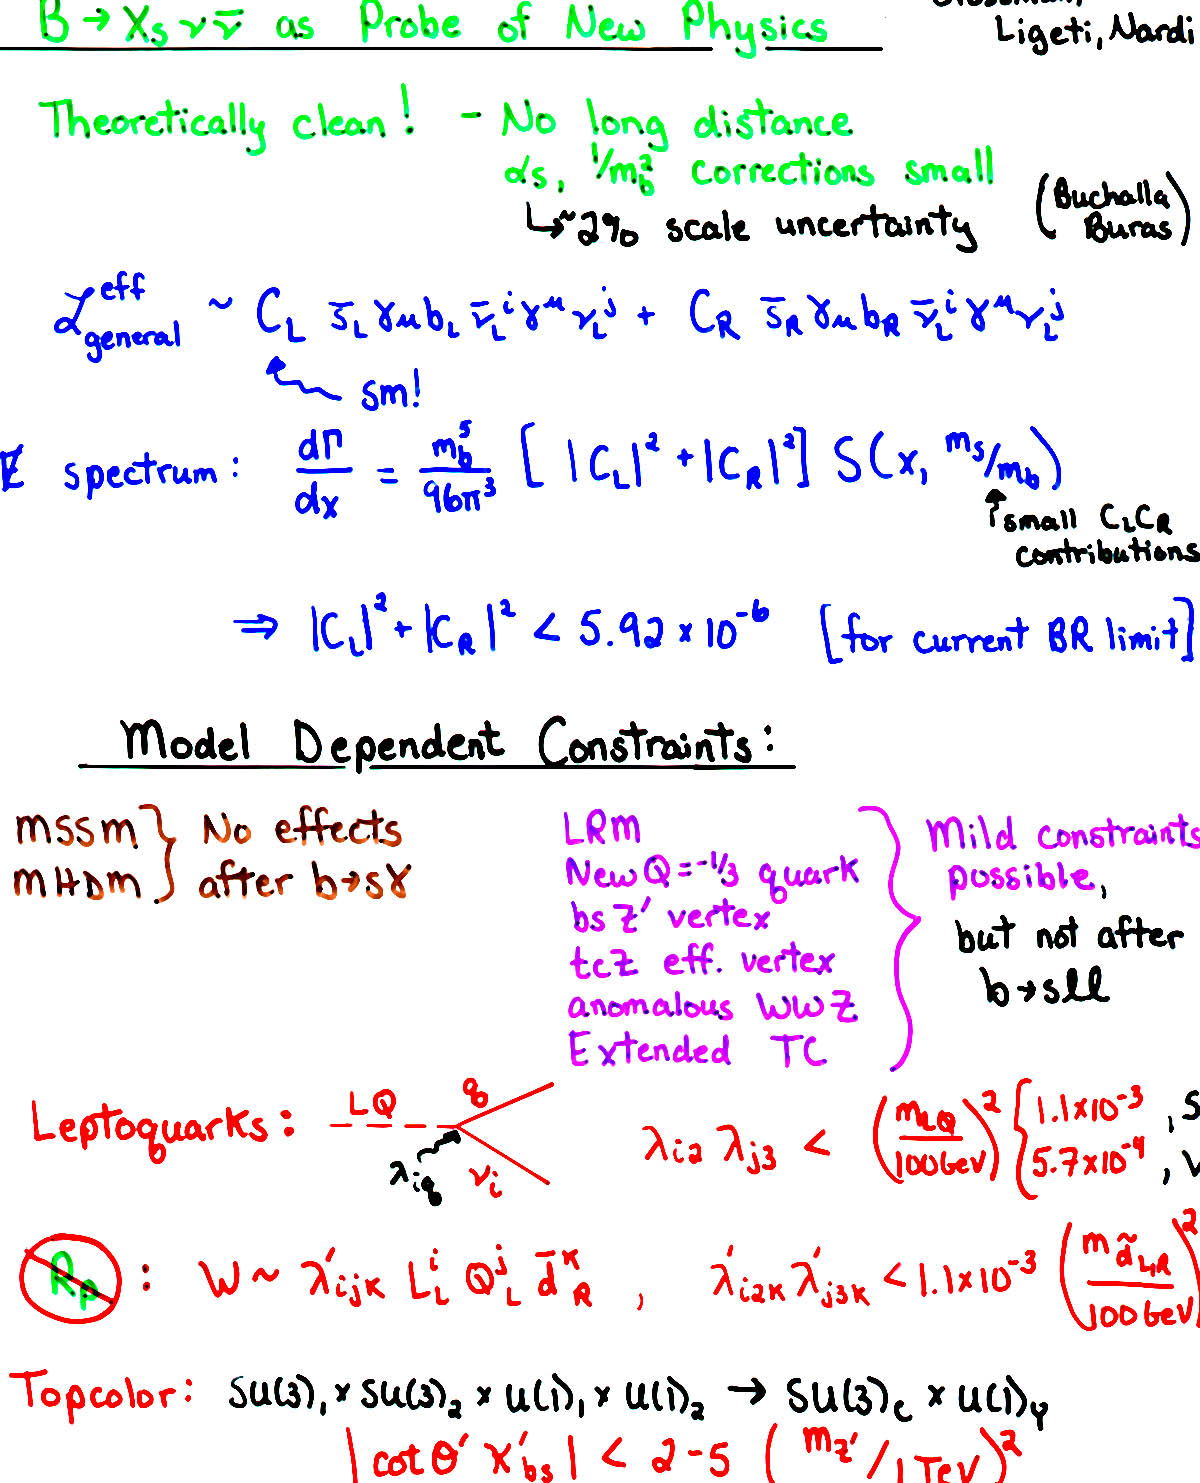 B → Xs ν ν̄ as Probe of New Physics
Ligeti, Nardi
Theoretically clean! - No long distance
αs, 1/m_b² corrections small
↳ ~2% scale uncertainty (Buchalla Buras)
ℒ^eff_general ~ C_L s̄_L γ_μ b_L ν̄_L^i γ^μ ν_L^j + C_R s̄_R γ_μ b_R ν̄_L^i γ^μ ν_L^j
SM!
E̸ spectrum: dΓ/dx = m_b^5/96π³ [|C_L|² + |C_R|²] S(x, m_s/m_b)
small C_L C_R
contributions
⇒ |C_L|² + |C_R|² < 5.92 × 10^-6 [for current BR limit]
Model Dependent Constraints:
MSSM } No effects
MHDM } after b→sγ
LRM
New Q=-1/3 quark
bsZ' vertex
tcZ eff. vertex
anomalous WWZ
Extended TC
Mild constraints
possible,
but not after
b→sll
Leptoquarks: LQ q λ_iq ν_i λ_i2 λ_j3 < (m_LQ/100GeV)² { 1.1×10^-3 , S
5.7×10^-4 , V
R_p : W ~ λ'_ijk L_L^i Q_L^j d̄_R^k , λ'_i2k λ'_j3k < 1.1×10^-3 (m_d̃_L,R/100GeV)²
Topcolor: SU(3)₁ × SU(3)₂ × U(1)₁ × U(1)₂ → SU(3)_c × U(1)_Y
|cot θ' χ'_bs| < 2-5 (m_Z'/1TeV)²